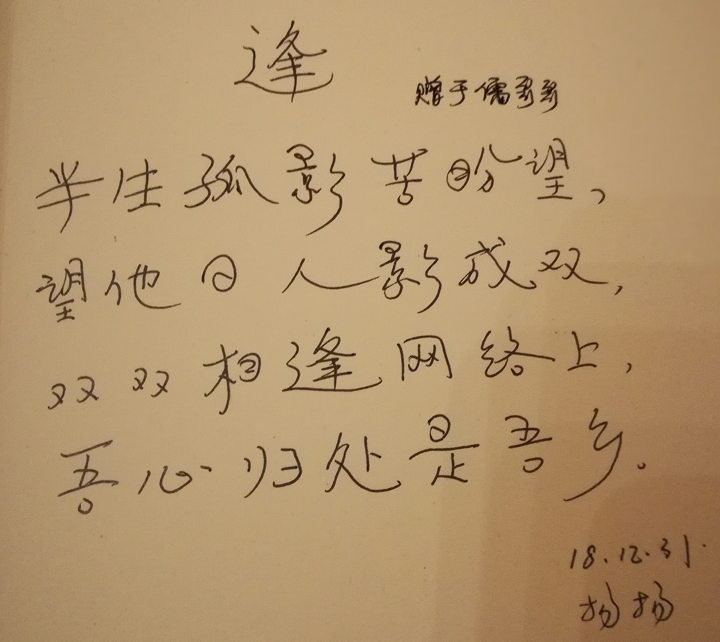 逢
赠于儒哥哥
半生孤影苦盼望，
望他日人影成双，
双双相逢网络上，
吾心归处是吾乡。
18.12.31.
扬扬